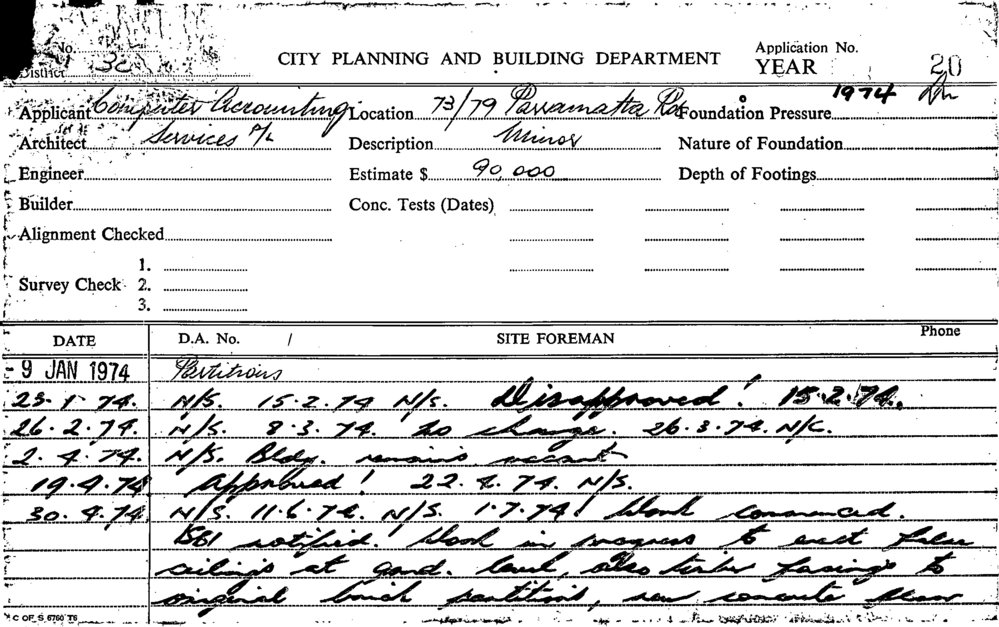 No.
District
CITY PLANNING AND BUILDING DEPARTMENT
Application No.
YEAR 20
1974
Applicant Computer Accounting Location 73/79 Parramatta Rd Foundation Pressure
Architect Services P/L Description Minor Nature of Foundation
Engineer Estimate $ 90,000 Depth of Footings
Builder Conc. Tests (Dates)
Alignment Checked
Survey Check 1.
2.
3.
DATE D.A. No. / SITE FOREMAN Phone
- 9 JAN 1974 Partitions
23.1.74. N/S. 15.2.74 N/S. Disapproved! 15.2.74.
26.2.74. N/S. 8.3.74. No change. 26.3.74. N/C.
2.4.74. N/S. Bldg. remains vacant
19.4.74 Approved! 22.4.74. N/S.
30.4.74 N/S. 11.6.74. N/S. 1.7.74! Work commenced.
notified. Work in progress to erect false
ceilings at gnd. level, also timber facings to
original brick partitions, new concrete floor
C OF S 6760 T6